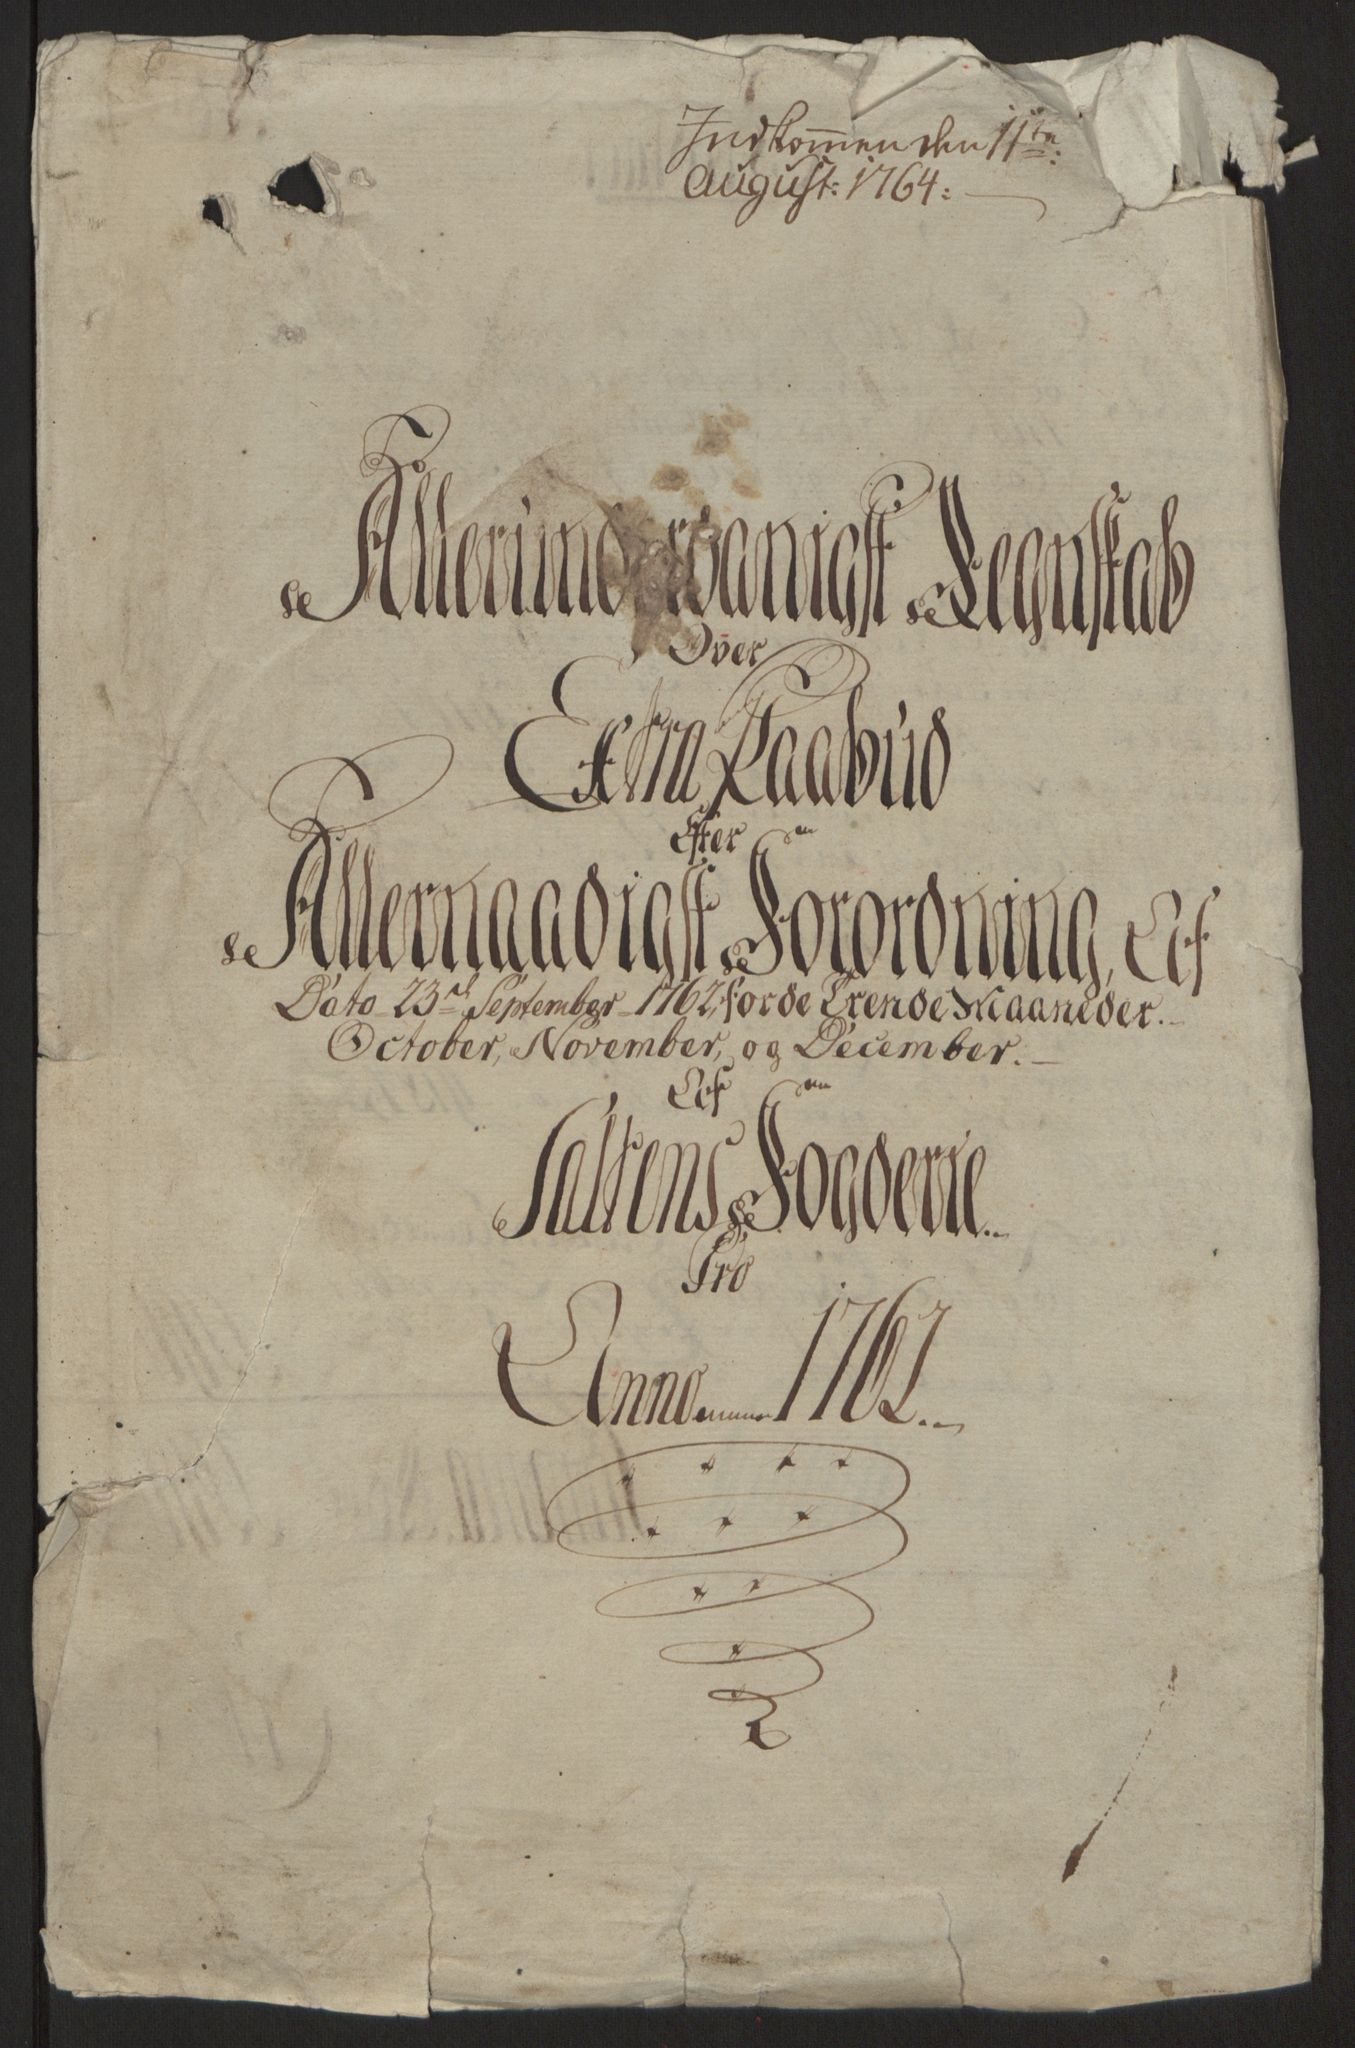 Indkom̄en den 11te:
August: 1764:
Allerunderdanigst Regnskab
Over
Extra Paabud
Efter
Allernaadigst Forordning, Af
Dato 23de September 1762, for de Trende Maaneder.
October, November, og December.
Af
Saltens Fogderie.
Pro
Anno 1762.